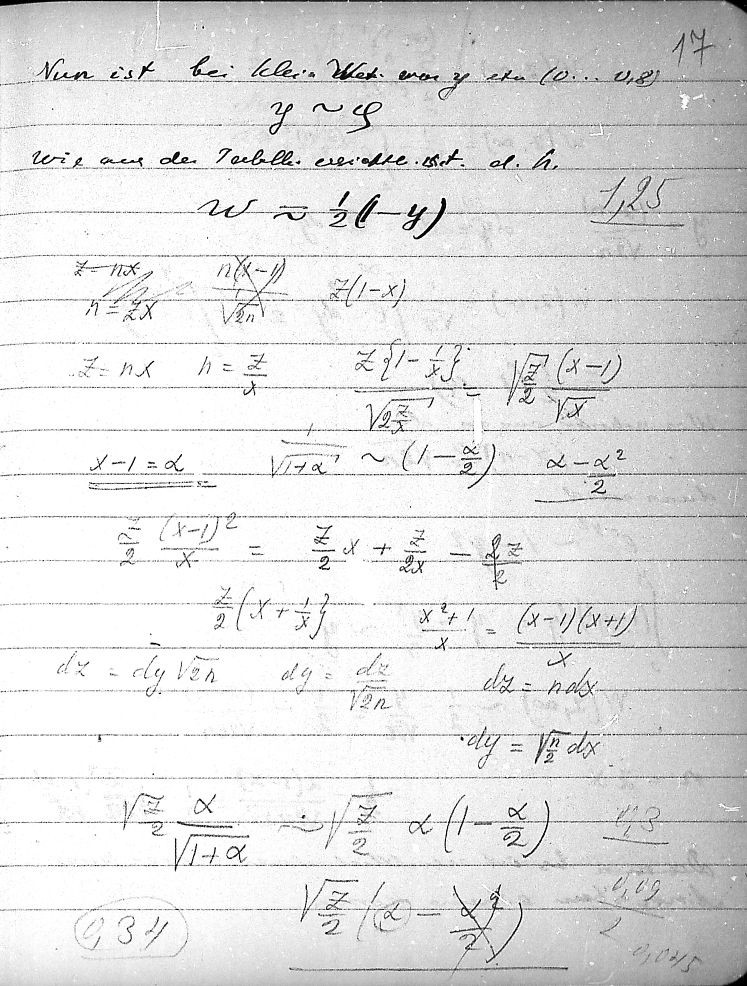 17
Nun ist bei klein Wert. von y etwa (0 ... 0,8)
y ~ φ
wie aus der Tabelle ist. d. h.
w ≈ 1/2 (1 - y)
1,25
z = nx
n(x-1) / √2n
z(1-x)
n = zx
z = nx   n = z/x   z{1 - 1/x} / √(2 z/x) = √(z/2) (x-1)/√x
x - 1 = α   1/√(1+α) ~ (1 - α/2)   α - α²/2
z/2 (x-1)²/x = z/2 x + z/2x - 2z/2
z/2 (x + 1/x}   x²+1 / x = (x-1)(x+1) / x
dz = dy √2n   dy = dz/√2n   dz = n dx
dy = √(n/2) dx
√(z/2) α/√(1+α) ~ √(z/2) α (1 - α/2)
0,3
√(z/2) (α - α²/2)
0,09 / 2
0,34
0,045